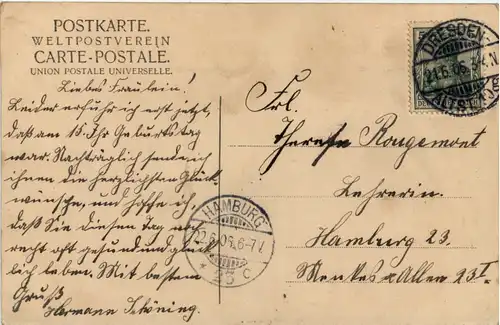 POSTKARTE.
WELTPOSTVEREIN
CARTE-POSTALE.
UNION POSTALE UNIVERSELLE.
Liebes Fräulein!
Leider erfuhr ich erst jetzt,
daß am 15. Ihr Geburtstag
war. Nachträglich sende ich
ihnen die herzlichsten Glück-
wünsche, und hoffe ich,
daß Sie diesen Tag noch
recht oft gesund und glück-
lich leben. Mit bestem
Gruß
Hermann
Frl.
Therese Rougemont
Lehrerin.
Hamburg 23.
Allee 23 I
DRESDEN-
21.6.05
ALTST.
HAMBURG
22.6.05.6-7
* 23 c